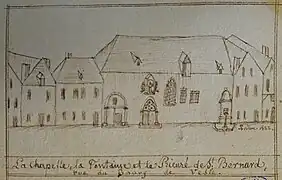 La Chapelle, la Fontaine et le Prieuré de St Bernard,
rue du Bourg de Vesle.